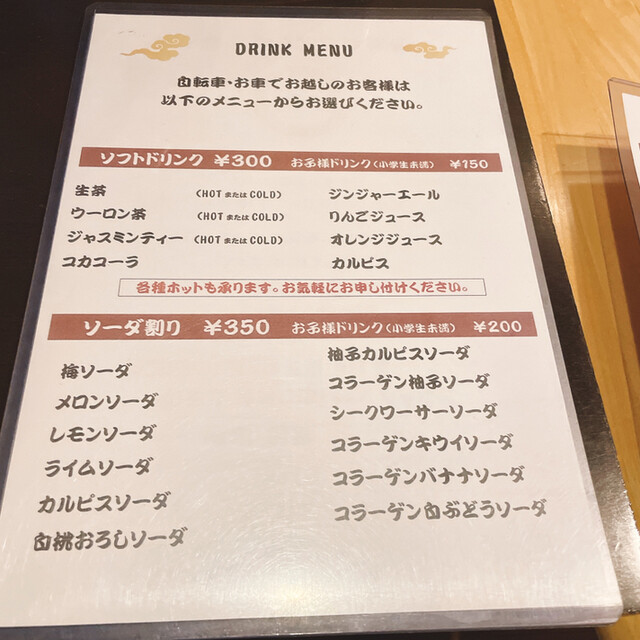 DRINK MENU
自転車・お車でお越しのお客様は
以下のメニューからお選びください。
ソフトドリンク ¥300 お子様ドリンク(小学生未満) ¥150
生茶 (HOTまたはCOLD)
ウーロン茶 (HOTまたはCOLD)
ジャスミンティー (HOTまたはCOLD)
コカコーラ
ジンジャーエール
りんごジュース
オレンジジュース
カルピス
各種ホットも承ります。お気軽にお申し付けください。
ソーダ割り ¥350 お子様ドリンク(小学生未満) ¥200
梅ソーダ
メロンソーダ
レモンソーダ
ライムソーダ
カルピスソーダ
白桃おろしソーダ
柚子カルピスソーダ
コラーゲン柚子ソーダ
シークワーサーソーダ
コラーゲンキウイソーダ
コラーゲンバナナソーダ
コラーゲン白ぶどうソーダ